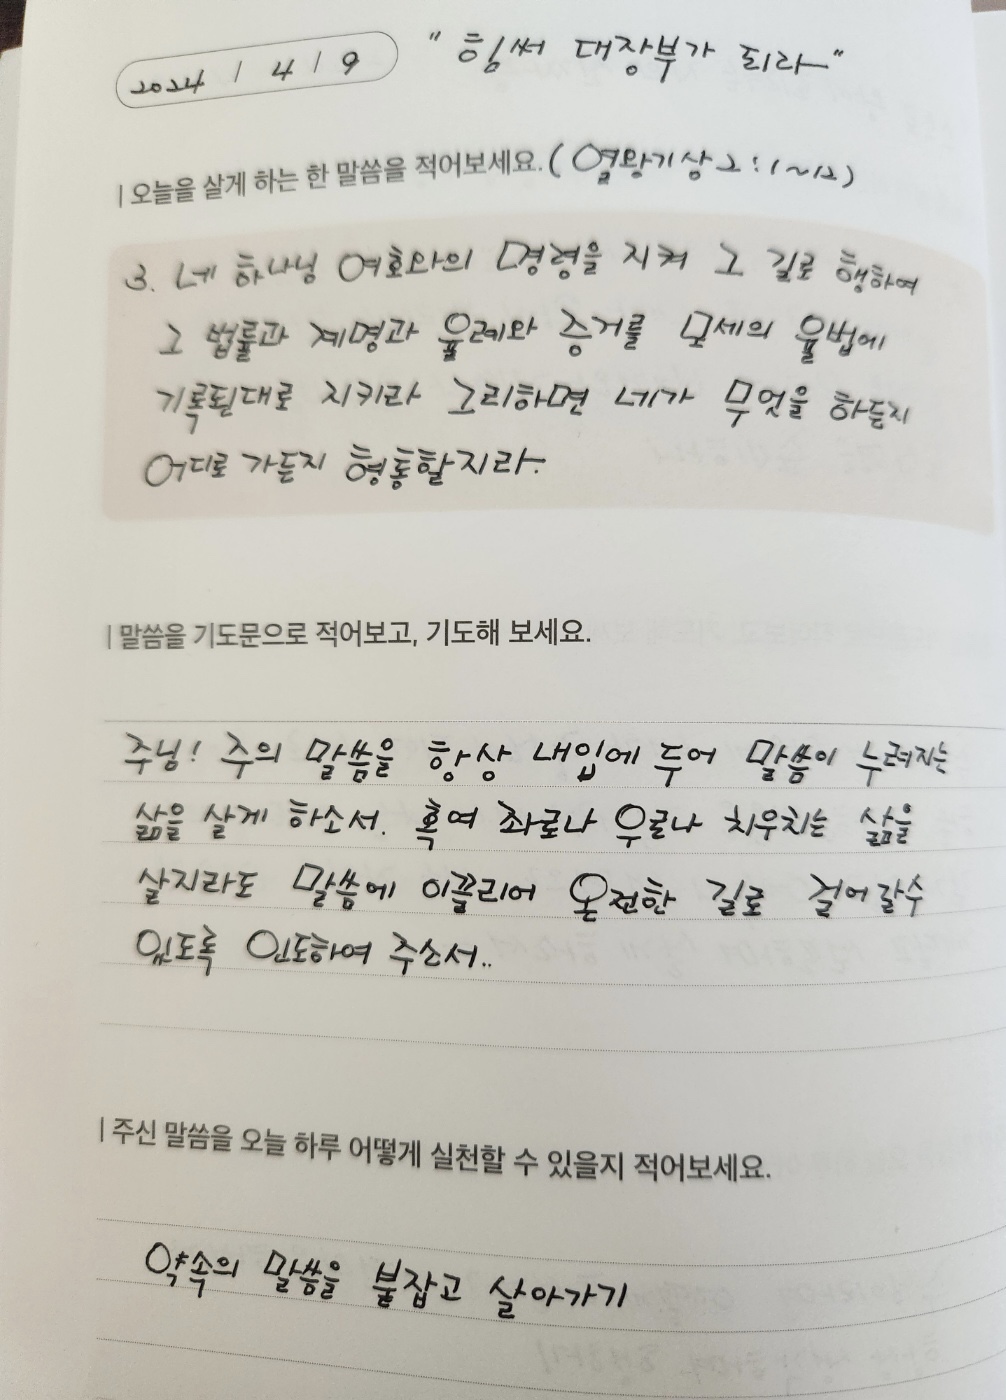 2024 / 4 / 9 "힘써 대장부가 되라"
| 오늘을 살게 하는 한 말씀을 적어보세요. (열왕기상 2:1~12)
3. 네 하나님 여호와의 명령을 지켜 그 길로 행하여
그 법률과 계명과 율례와 증거를 모세의 율법에
기록된대로 지키라 그리하면 네가 무엇을 하든지
어디로 가든지 형통할지라.
| 말씀을 기도문으로 적어보고, 기도해 보세요.
주님! 주의 말씀을 항상 내입에 두어 말씀이 누려지는
삶을 살게 하소서. 혹여 좌로나 우로나 치우치는 삶을
살지라도 말씀에 이끌리어 온전한 길로 걸어갈수
있도록 인도하여 주소서..
| 주신 말씀을 오늘 하루 어떻게 실천할 수 있을지 적어보세요.
약속의 말씀을 붙잡고 살아가기